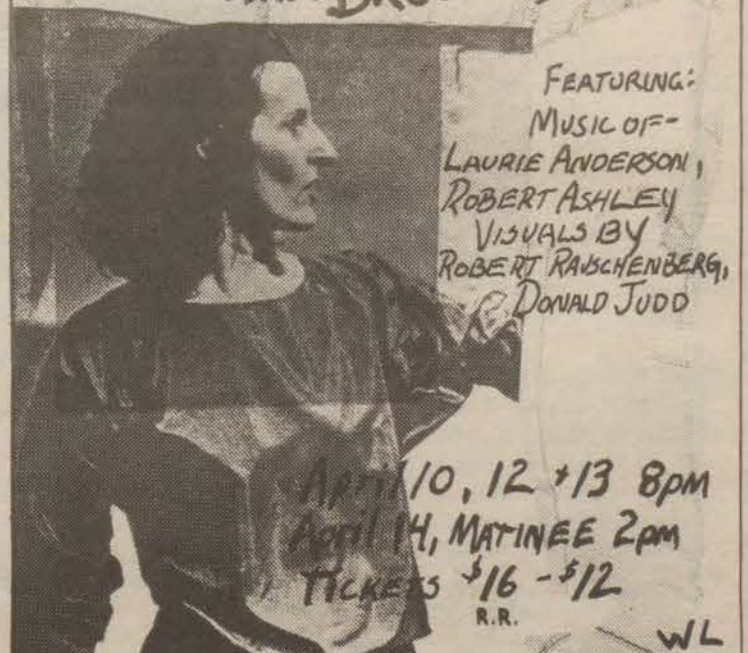 FEATURING:
MUSIC OF-
LAURIE ANDERSON,
ROBERT ASHLEY
VISUALS BY
ROBERT RAUSCHENBERG,
DONALD JUDD
April 10, 12 + 13 8pm
April 14, MATINEE 2pm
TICKETS $16 - $12
R.R.
WL